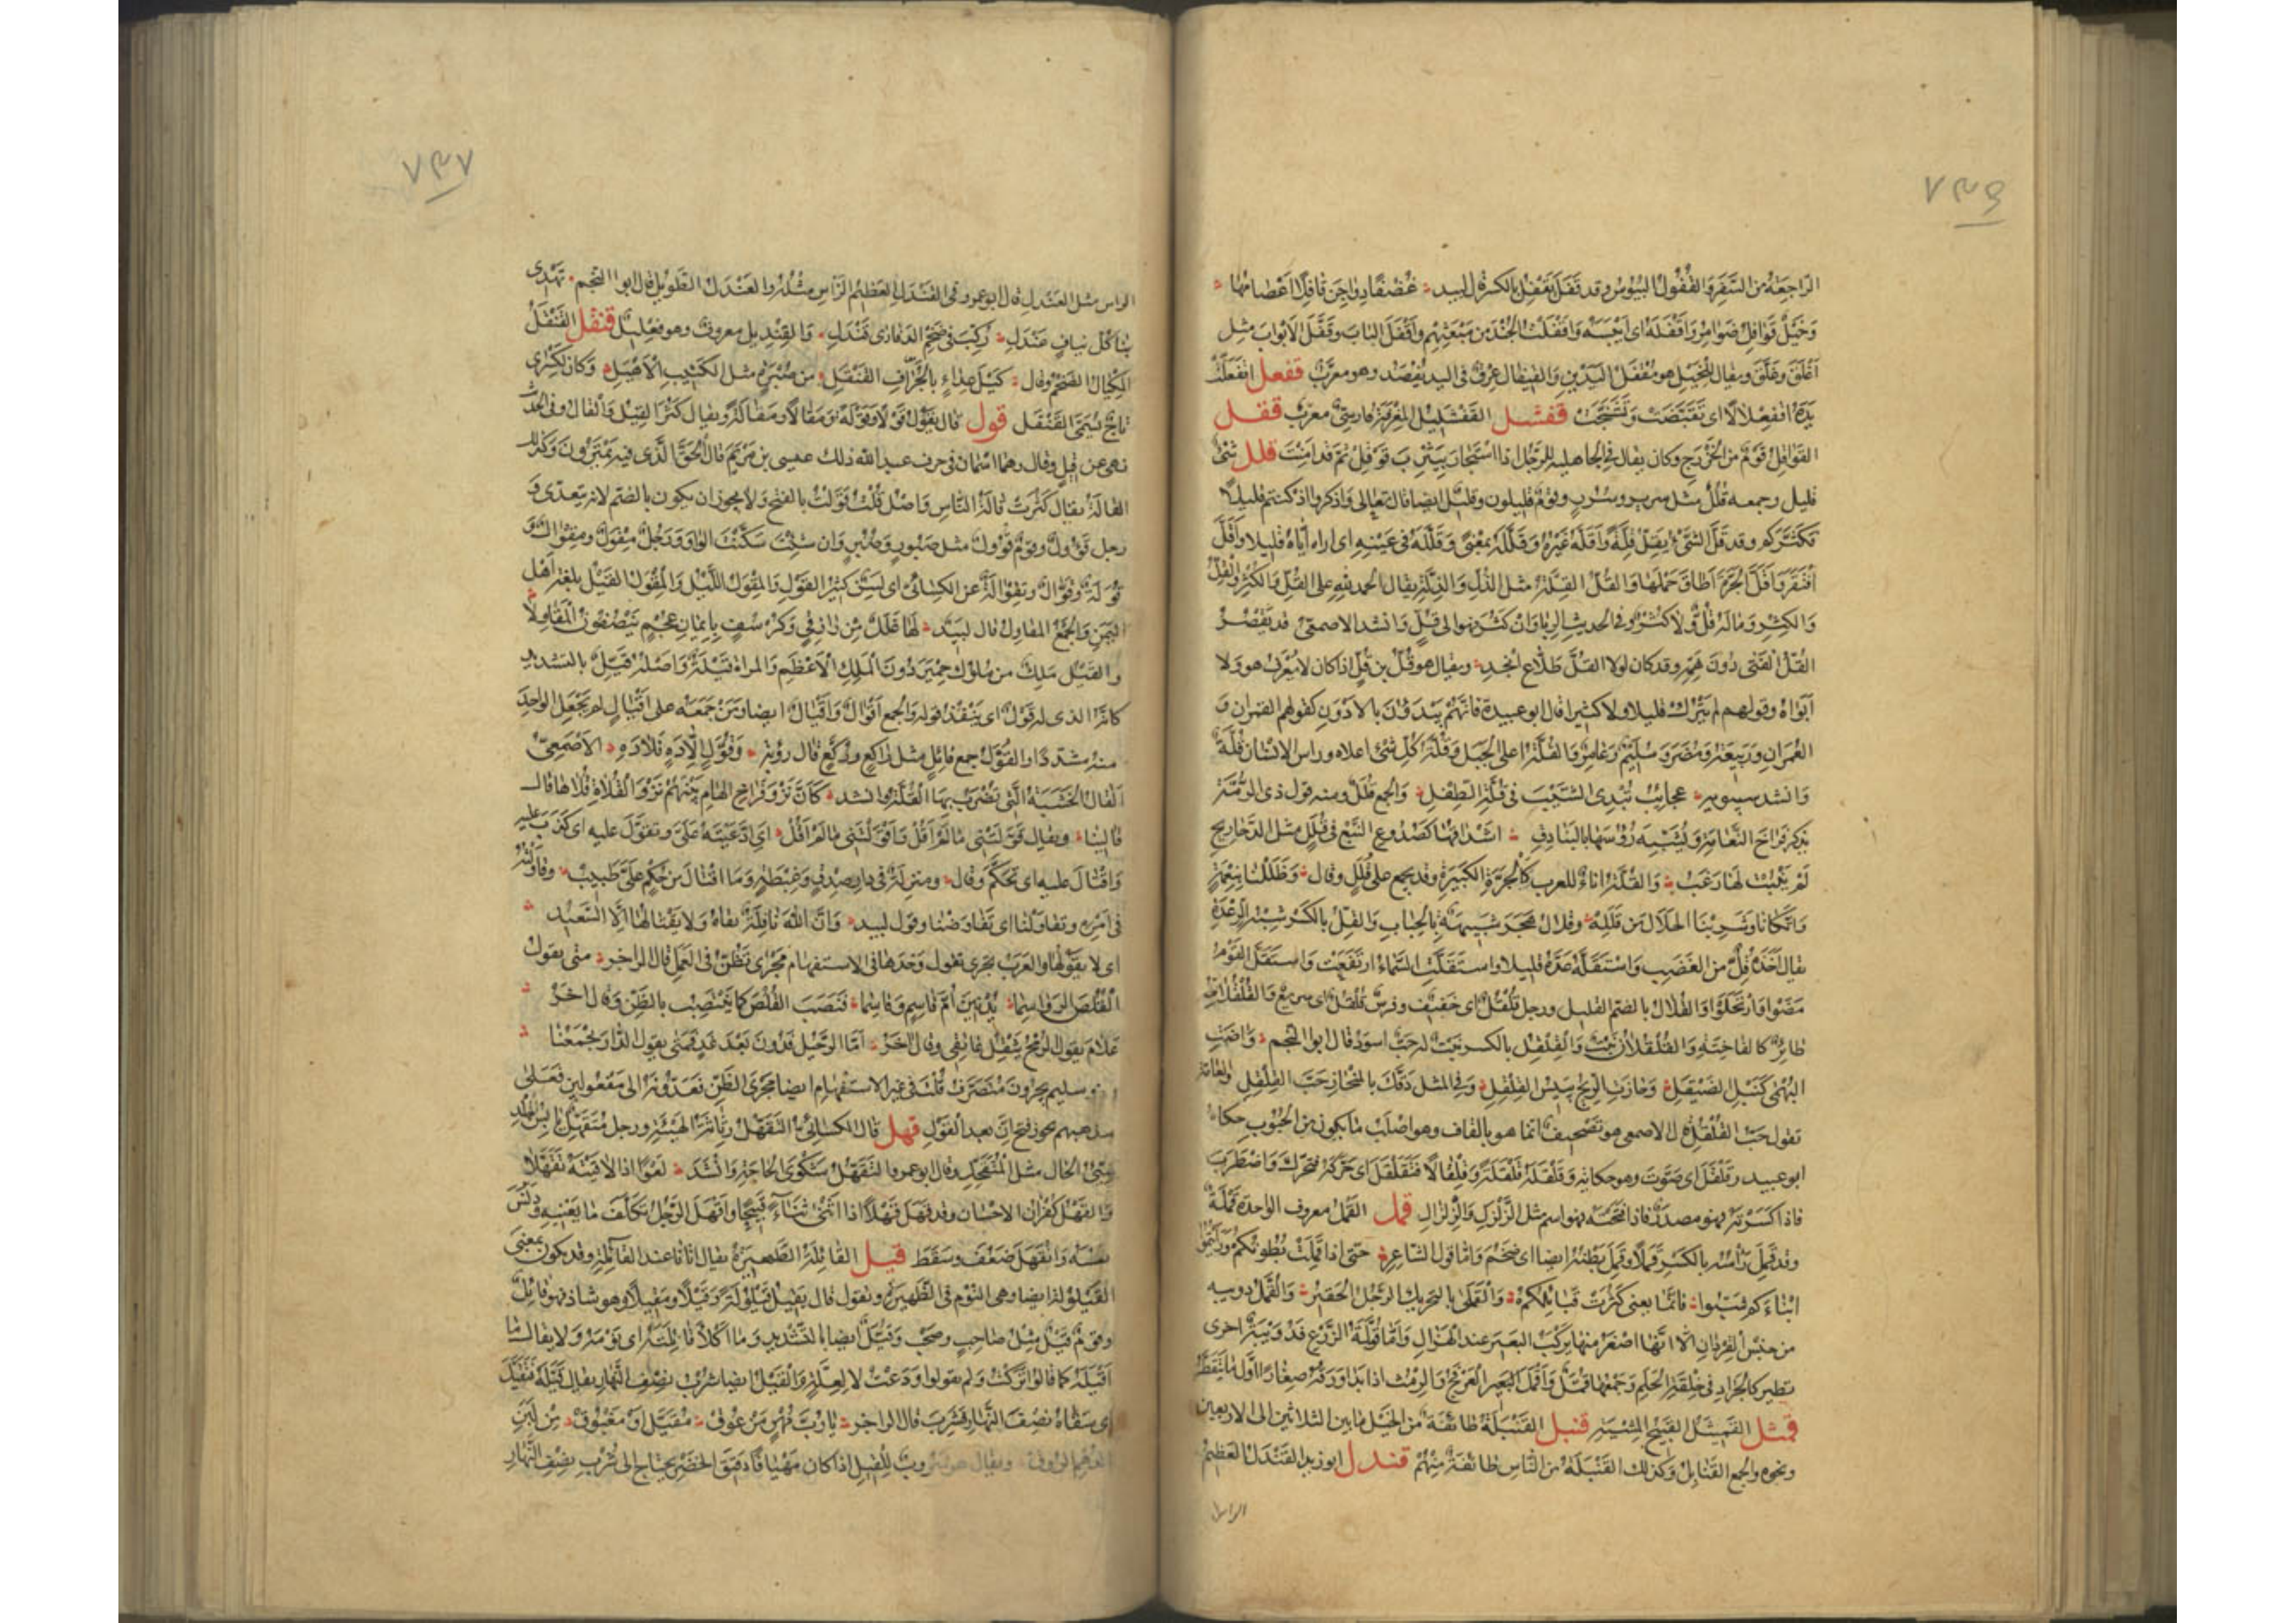 ٧٣٦
الراجعة من السفر والقفول اليبوس وقد قفل يقفل بالكسر قال لبيد غضفا دواجن قافلا اعصامها
وخيل قوافل ضوامر واقفله اي ايبسه واقفلت الجند من مبعثهم واقفل الباب وقفل الابواب مثل
اغلق وغلق ويقال للبخيل هو مقفل اليدين والقيفال عرق في اليد يفصد وهو معرب قفعل اقفعلت
يده اقفعلالا اي تقبضت وتشنجت قفشل القفشليل المغرفة فارسي معرب ققل
القواقل قوم من الخزرج وكان يقال في الجاهلية للرجل اذا استجار بيثرب قوقل ثم قد امنت قلل شئ
قليل وجمعه قلل مثل سرير وسرر وقوم قليلون وقليل ايضا قال تعالى واذكروا اذ كنتم قليلا
فكثركم وقد قل الشئ يقل قلة واقله غيره وقلله بمعنى وقلله في عينه اي اراه اياه قليلا واقل
افتقر واقل الجرة اطاق حملها والقل القلة مثل الذل والذلة يقال الحمد لله على القل والكثر والقل
والكثر وماله قل ولا كثر وفي الحديث الربا وان كثر فهو الى قل وانشد الاصمعي قد يقصر
القل الفتى دون همه وقد كان لولا القل طلاع انجد ويقال هو قل بن قل اذا كان لا يعرف هو ولا
ابواه وقولهم لم يترك قليلا ولا كثيرا قال ابو عبيدة فانهم يبدؤن بالادون كقولهم القمران و
العمران وربيعة ومضر وسليم وعامر والقلة اعلى الجبل وقلة كل شئ اعلاه وراس الانسان قلة
وانشد سيبويه عجائب تبدي الشيب في قلة الطفل والجمع قلل ومنه قول ذي الرمة
يذكر فراخ النعامة ويشبه رؤسها بالبنادق اشداقها كصدوع النبع في قلل مثل الدحاريج
لم ينبت لها زغب والقلة اناء للعرب كالجرة الكبيرة وقد يجمع على قلل وقال وظللنا بنعمة
واتكانا وشربنا الحلال من قلله وقلال هجر شبيهة بالحباب والقل بالكسر شبه الرعدة
يقال اخذه قل من الغضب واستقله عده قليلا واستقلت السماء ارتفعت واستقل القوم
مضوا وارتحلوا والقلال بالضم القليل ورجل قلقل اي خفيف وفرس قلقل اي سريع والقلقلان
طائر كالفاختة والقلقلان نبت والقلقل بالكسر نبت له حب اسود قال ابو النجم واضت
البهمى كنبل الصيقل وحازت الريح يبيس القلقل وفي المثل دقك بالمنحاز حب القلقل والعامة
تقول حب الفلفل قال الاصمعي هو تصحيف انما هو بالقاف وهو اصلب ما يكون من الحبوب حكاه
ابو عبيد وتقلقل اي صوت وهو حكاية وقلقله قلقلة وقلقالا فتقلقل اي حركه فتحرك واضطرب
فاذا كسرته فهو مصدر فاذا فتحته فهو اسم مثل الزلزال والزلزال قمل القمل معروف الواحدة قملة
وقد قمل راسه بالكسر قملا وقمل بطنه ايضا اي ضخم واما قول الشاعر حتى اذا قملت بطونكم ورايتم
ابناءكم شبوا فانما يعني كثرت قبائلكم والقملى بالتحريك الرجل الحقير والقمل دويبة
من جنس القردان الا انها اصغر منها يركب البعير عند الهزال واما قملة الزرع فدويبة اخرى
تطير كالجراد في خلقة الحلم وجمعها قمل واقمل البعير العرفج والرمث اذا بدا ورقه صغارا اول ما يتفطر
قمثل القميثل القبيح المشية قنبل القنبلة طائفة من الخيل ما بين الثلاثين الى الاربعين
ونحوه والجمع القنابل وكذلك القنبلة من الناس طائفة منهم قندل ابو زيد القندل العظيم
الراس
٧٣٧
الراس مثل العندل قال ابو عمرو القندل العظيم الراس مثله والعندل الطويل قال ابو النجم تهدي
بنا كل نياف عندل ركب في ضخم الذفارى قندل والقنديل معروف وهو فعليل قنقل القنقل
المكيال الضخم وقال كيل عداء بالجراف القنقل من صبرة مثل الكثيب الاهيل وكان لكسرى
تاج يسمى القنقل قول قال يقول قولا وقولة ومقالا ومقالة ويقال كثر القيل والقال وفي الحديث
نهى عن قيل وقال وهما اسمان في حرف عبد الله ذلك عيسى بن مريم قال الحق الذي فيه يمترون وكذلك
القالة يقال كثرت قالة الناس واصل قلت قولت بالفتح ولا يجوز ان يكون بالضم لانه يتعدى و
رجل قؤول وقوم قول مثل صبور وصبر وان شئت سكنت الواو ورجل مقول ومقوال و
قولة وقوال وتقوالة عن الكسائي اي لسن كثير القول والمقول اللسان والمقول القيل بلغة اهل
اليمن والجمع المقاول قال لبيد لها غلل من رازقي وكرسف بايمان عجم ينصفون المقاولا
والقيل ملك من ملوك حمير دون الملك الاعظم والمراة قيلة واصله قيل بالتشديد
كانه الذي له قول اي ينفذ قوله والجمع اقوال واقيال ايضا ومن جمعه على اقيال لم يجعل الواحد
منه مشددا والقول جمع قائل مثل راكع وركع قال رؤبة وقول الا ده فلا ده الاصمعي
القال الخشبة التي يضرب بها القلة وانشد كان نزو فراخ الهام بينهم نزو القلاة قلاها قال
قالينا ويقال قولتني ما لم اقل واقولتني ما لم اقل اي ادعيته علي وتقول عليه اي كذب عليه
واقتال عليه اي تحكم وقال ومنزلة في دار صدق وغبطة وما اقتال من حكم علي طبيب وقاولته
في امره وتقاولنا اي تفاوضنا وقول لبيد وان الله نافلة تقاه ولا يقتالها الا السعيد
اي لا يقولها والعرب تجري تقول وحدها في الاستفهام مجرى تظن في العمل قال الراجز متى تقول
القلص الرواسما يدنين ام قاسم وقاسما فنصب القلص كما ينتصب بالظن وقال اخر
علام تقول الرمح يثقل عاتقي وقال اخر اما الرحيل فدون بعد غد فمتى تقول الدار تجمعنا
وبنو سليم يجرون متصرف قلت في غير الاستفهام ايضا مجرى الظن فيعدونه الى مفعولين فعلى
مذهبهم يجوز فتح ان بعد القول قهل قال الكسائي التقهل رثاثة الهيئة ورجل متقهل يابس الجلد
سيئ الحال مثل المتقحل وقال ابو عمرو التقهل شكوى الحاجة وانشد لعوا اذا لاقيته تقهلا
والقهل كفران الاحسان وقد قهل قهلا اذا اثنى ثناء قبيحا واقهل الرجل تكلف ما يعنيه ودنس
نفسه وانقهل ضعف وسقط قيل القائلة الظهيرة يقال اتانا عند القائلة وقد يكون بمعنى
القيلولة ايضا وهي النوم في الظهيرة وتقول قال يقيل قيلولة وقيلا ومقيلا وهو شاذ فهو قائل
وقوم قيل مثل صاحب وصحب وقيل ايضا بالتشديد وما اكلا قائلته اي نومه ولا يقال ما
اقيله كما قالوا تركت ولم يقولوا ودعت لا لعلة والقيل ايضا شرب نصف النهار يقال قيله فتقيل
اي سقاه نصف النهار فشرب قال الراجز يا رب مهر مزعوق مقيل او مغبوق من لبن
الدهم الروق ويقال هو شروب للقيل اذا كان مهيافا دقيق الخصر يحتاج الى شرب نصف النهار